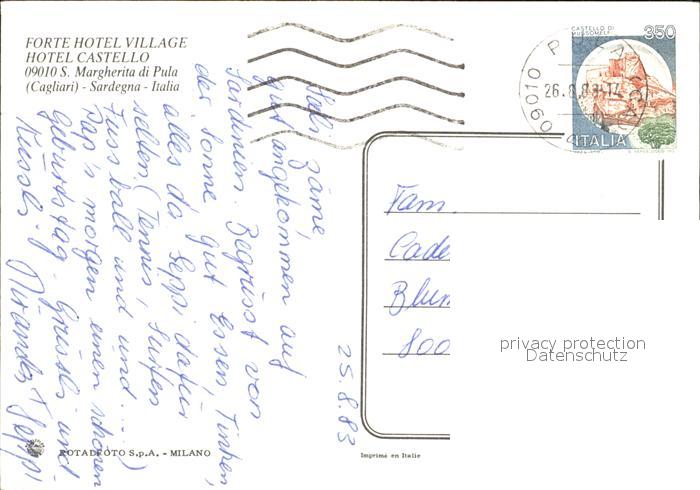 FORTE HOTEL VILLAGE
HOTEL CASTELLO
09010 S. Margherita di Pula
(Cagliari) - Sardegna - Italia
CASTELLO DI
MUSSOMELI
350
ITALIA
09010 PULA
26.8.83-14
25.8.83
Hoi zäme,
gut angekommen auf
Sardinien. Begrüsst von
der Sonne, gut Essen, Trinken,
alles da Seppi dafür
selten. (Tennis, Surfen
Fussball und und....)
Pap's morgen einen schönen
Geburtstag. Grüssli und
Küssli.
Seppi
Fam.
Cade
Blum
800
privacy protection
Datenschutz
ROTALFOTO S.p.A. - MILANO
Imprimé en Italie